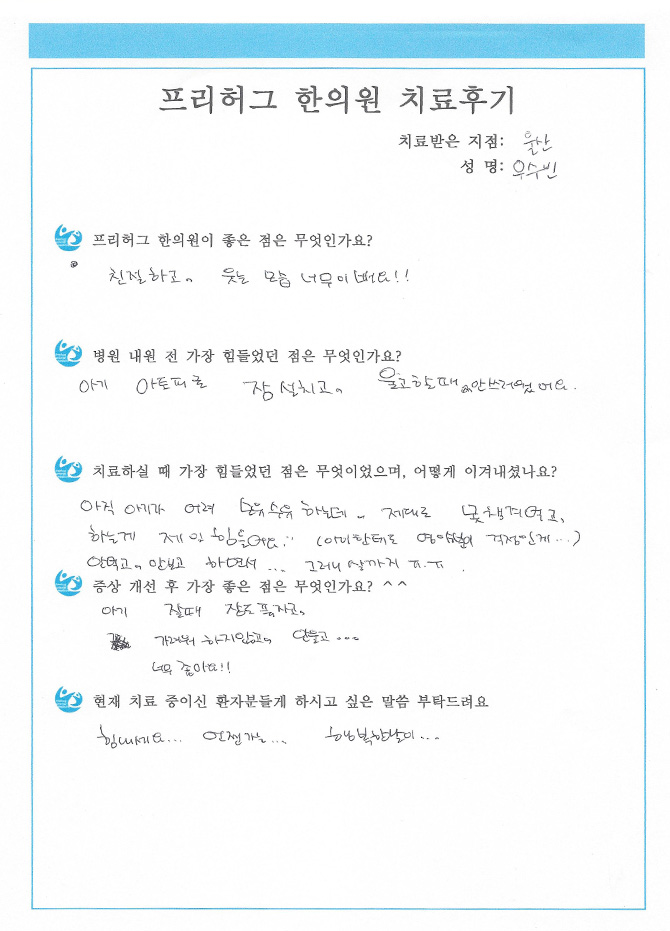 프리허그 한의원 치료후기
치료받은 지점: 울산
성 명: 우수빈
프리허그 한의원이 좋은 점은 무엇인가요?
친절하고, 웃는 모습 너무이뻐요!!
병원 내원 전 가장 힘들었던 점은 무엇인가요?
아기 아토피로 잠설치고, 울고할때 안쓰러웠어요.
치료하실 때 가장 힘들었던 점은 무엇이었으며, 어떻게 이겨내셨나요?
아직 아기가 어려 모유수유 하는데.. 제대로 못챙겨먹고,
하는게 제일 힘들어요.. (아기한테도 걱정인게...)
안먹고, 안보고 하면서... 그러니 살까지 ㅠ.ㅠ.
증상 개선 후 가장 좋은 점은 무엇인가요? ^^
아기 잘때 잠도 푹자고,
가려워 하지않고, 안울고...
너무 좋아요!!
현재 치료 중이신 환자분들게 하시고 싶은 말씀 부탁드려요
힘내세요... 언젠가는... 행복한날이...